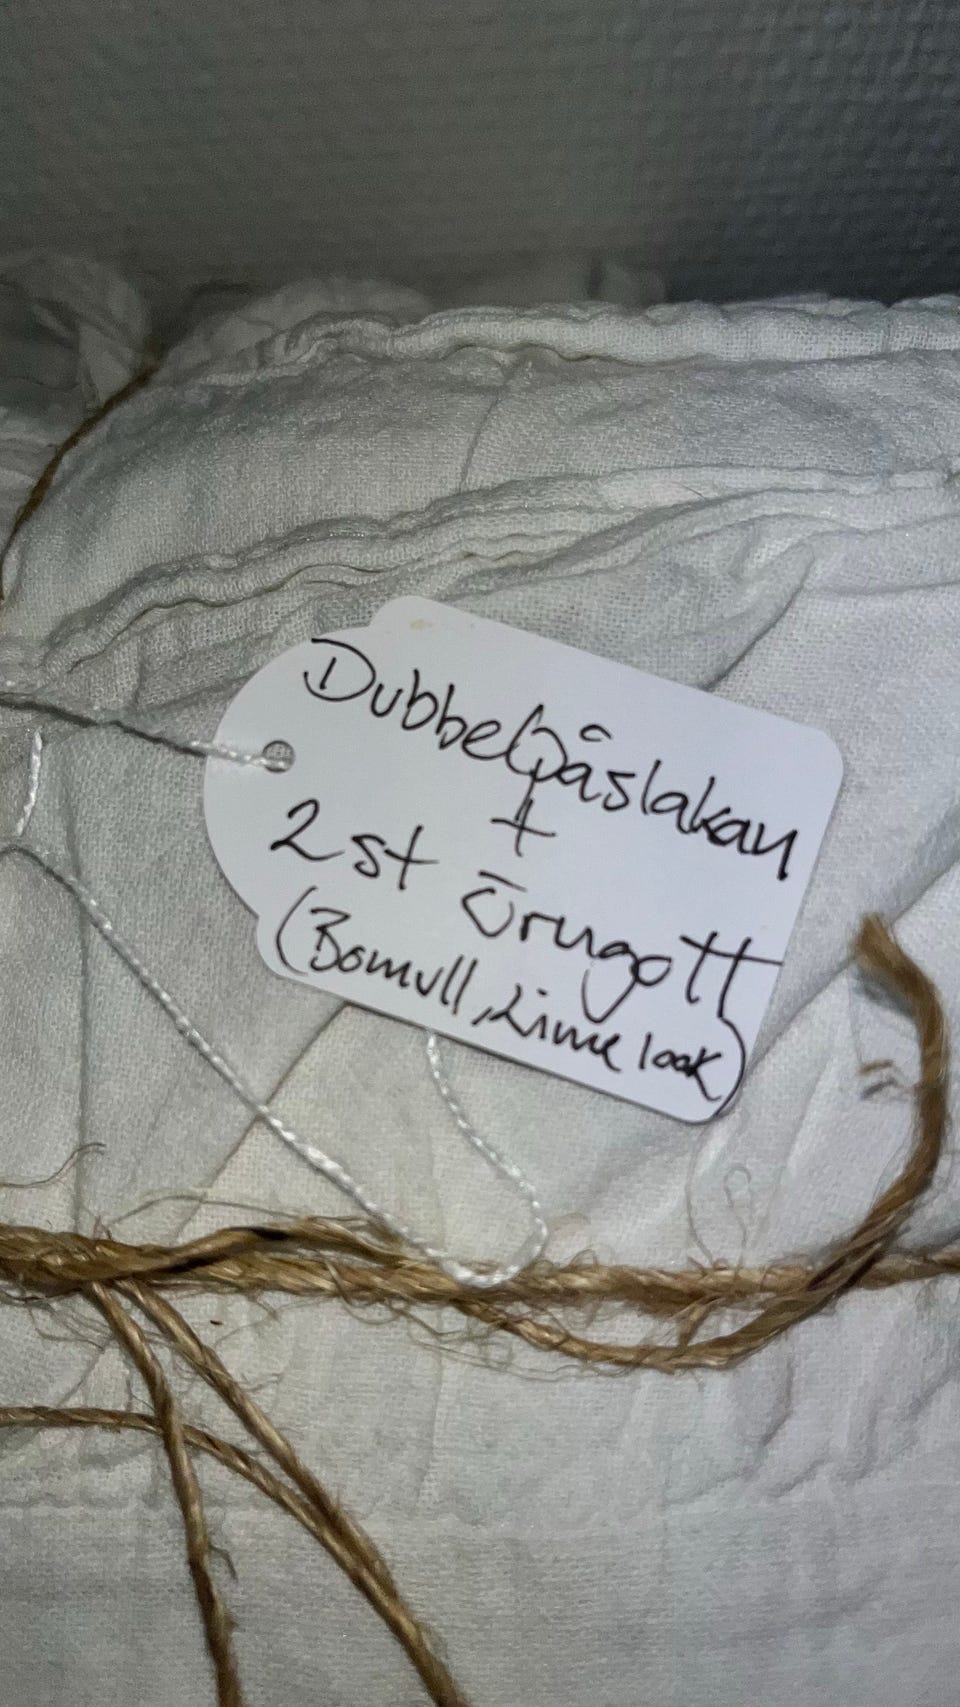 Dubbelpåslakan
+
2 st örngott
(Bomull, Linne look)